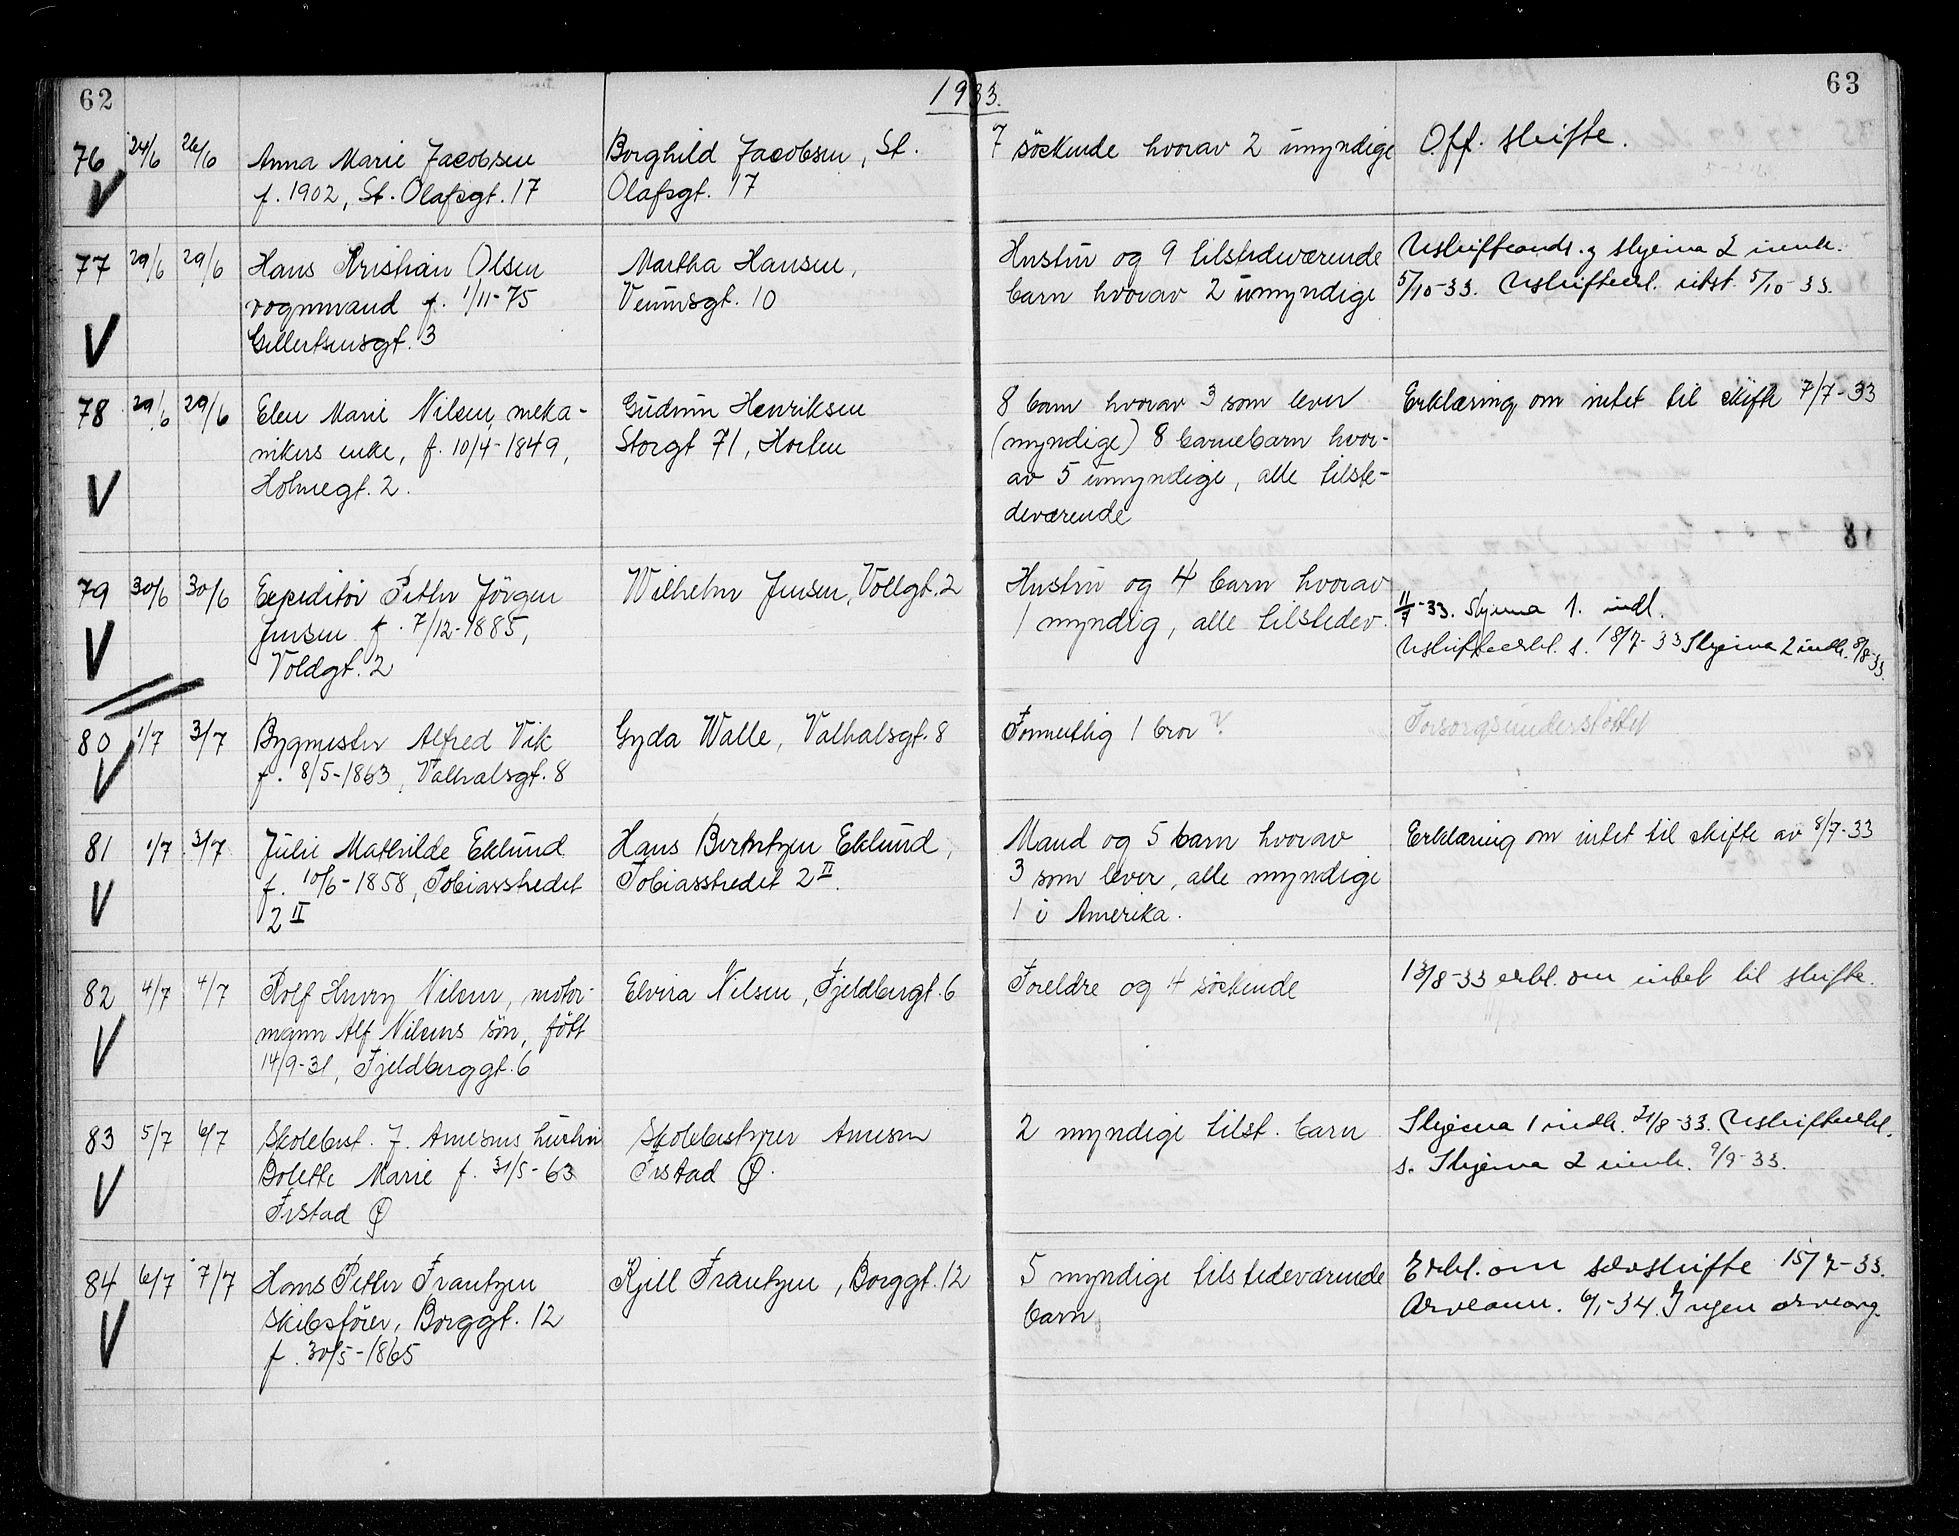 62
1933.
63
76 24/6 26/6 Anna Marie Jacobsen
f. 1902, St. Olafsgt. 17
Borghild Jacobsen, St.
Olafsgt. 17
7 söskende hvorav 2 umyndige
Off. skifte.
77 29/6 29/6 Hans Kristian Olsen
vognmand f. 1/11-75
Gellertsensgt. 3
Martha Hansen,
Veumsgt. 10
Hustru og 9 tilstedeværende
barn hvorav 2 umyndige
Uskifteands. og skjema 2 innk.
5/10-33. Uskifteerkl. utst. 5/10-33.
78 29/6 29/6 Elen Marie Nilsen, meka-
nikers enke, f. 10/4-1849,
Holmegt. 2.
Gudrun Henriksen
Storgt 71, Horten
8 barn hvorav 3 som lever
(myndige) 8 barnebarn hvor-
av 5 umyndige, alle tilste-
deværende
Erklæring om intet til skifte 7/7-33
79 30/6 30/6 Expeditör Pether Jörgen
Jensen f. 7/12-1885,
Voldgt. 2
Wilhelm Jensen, Vollgt. 2
Hustru og 4 barn hvorav
1 myndig, alle tilstedev.
11/7-33. Skjema 1. indl.
Uskifteerkl. s. 18/7-33 Skjema 2 indk. 8/8-33.
80 1/7 3/7 Bygmester Alfred Vik
f. 8/5-1863, Valhalsgt. 8
Gyda Walle, Valhalsgt. 8
Formentlig 1 bror ?
Forsorgsunderstøttet
81 1/7 3/7 Julie Mathilde Eklund
f. 10/6-1858, Tobiasstredet
2 II
Hans Berntzen Eklund,
Tobiasstredet 2 II.
Mand og 5 barn hvorav
3 som lever, alle myndige
1 i Amerika.
Erklæring om intet til skifte av 8/7-33
82 4/7 4/7 Rolf Henry Nilsen, motor-
mann Alf Nilsens sön, född
14/9-31, Fjeldberggt. 6
Elvira Nilsen, Fjeldbergt. 6
Foreldre og 4 söskende
13/8-33 erkl. om intet til skifte.
83 5/7 6/7 Skolebest. J. Arnesens hustru
Bolette Marie f. 31/5-63
Frstad Ø
Skolebestyrer Arnesen
Frstad Ø.
2 myndige tilst. barn
Skjema 1 indk. 21/8-33. Uskifteerkl.
s. Skjema 2 innk. 9/9-33.
84 6/7 7/7 Hans Pether Frantzen
skibsförer, Borggt. 12
f. 30/5-1865
Kjell Frantzen, Borggt. 12
5 myndige tilstedeværende
barn
Erkl. om selvskifte 15/7-33.
Arveann. 6/1-34. Ingen arveavg